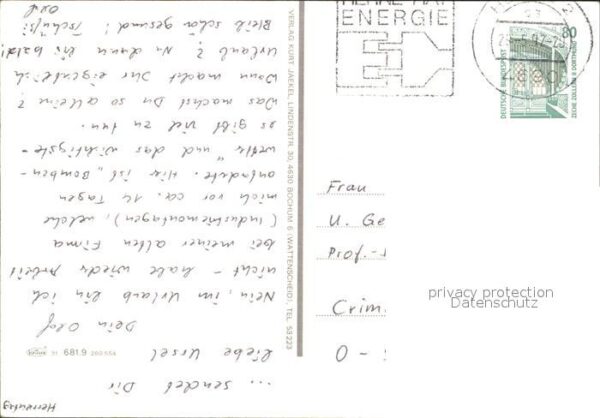 ... sendet Dir
liebe Ursel
Dein Olaf
Nein, im Urlaub bin ich
nicht - habe wieder Arbeit
bei meiner alten Firma
(Industriemontagen), welche
mich vor ca. 14 Tagen
anforderte. Hier ist „Bomben-
wetter" und das wichtigste -
es gibt viel zu tun.
Was machst Du so allein?
Wann macht Ihr eigentlich
Urlaub? Nu dann bis bald!
Bleib schön gesund! Tschüß!
Olaf
681.9
VERLAG KURT JAEKEL, LINDENSTR. 30, 4630 BOCHUM 6 (WATTENSCHEID), TEL. 53223
ENERGIE
4690
80
DEUTSCHE BUNDESPOST
ZECHE ZOLLERN II DORTMUND
Frau
U. Ge
Prof.-
Crim
O -
privacy protection
Datenschutz